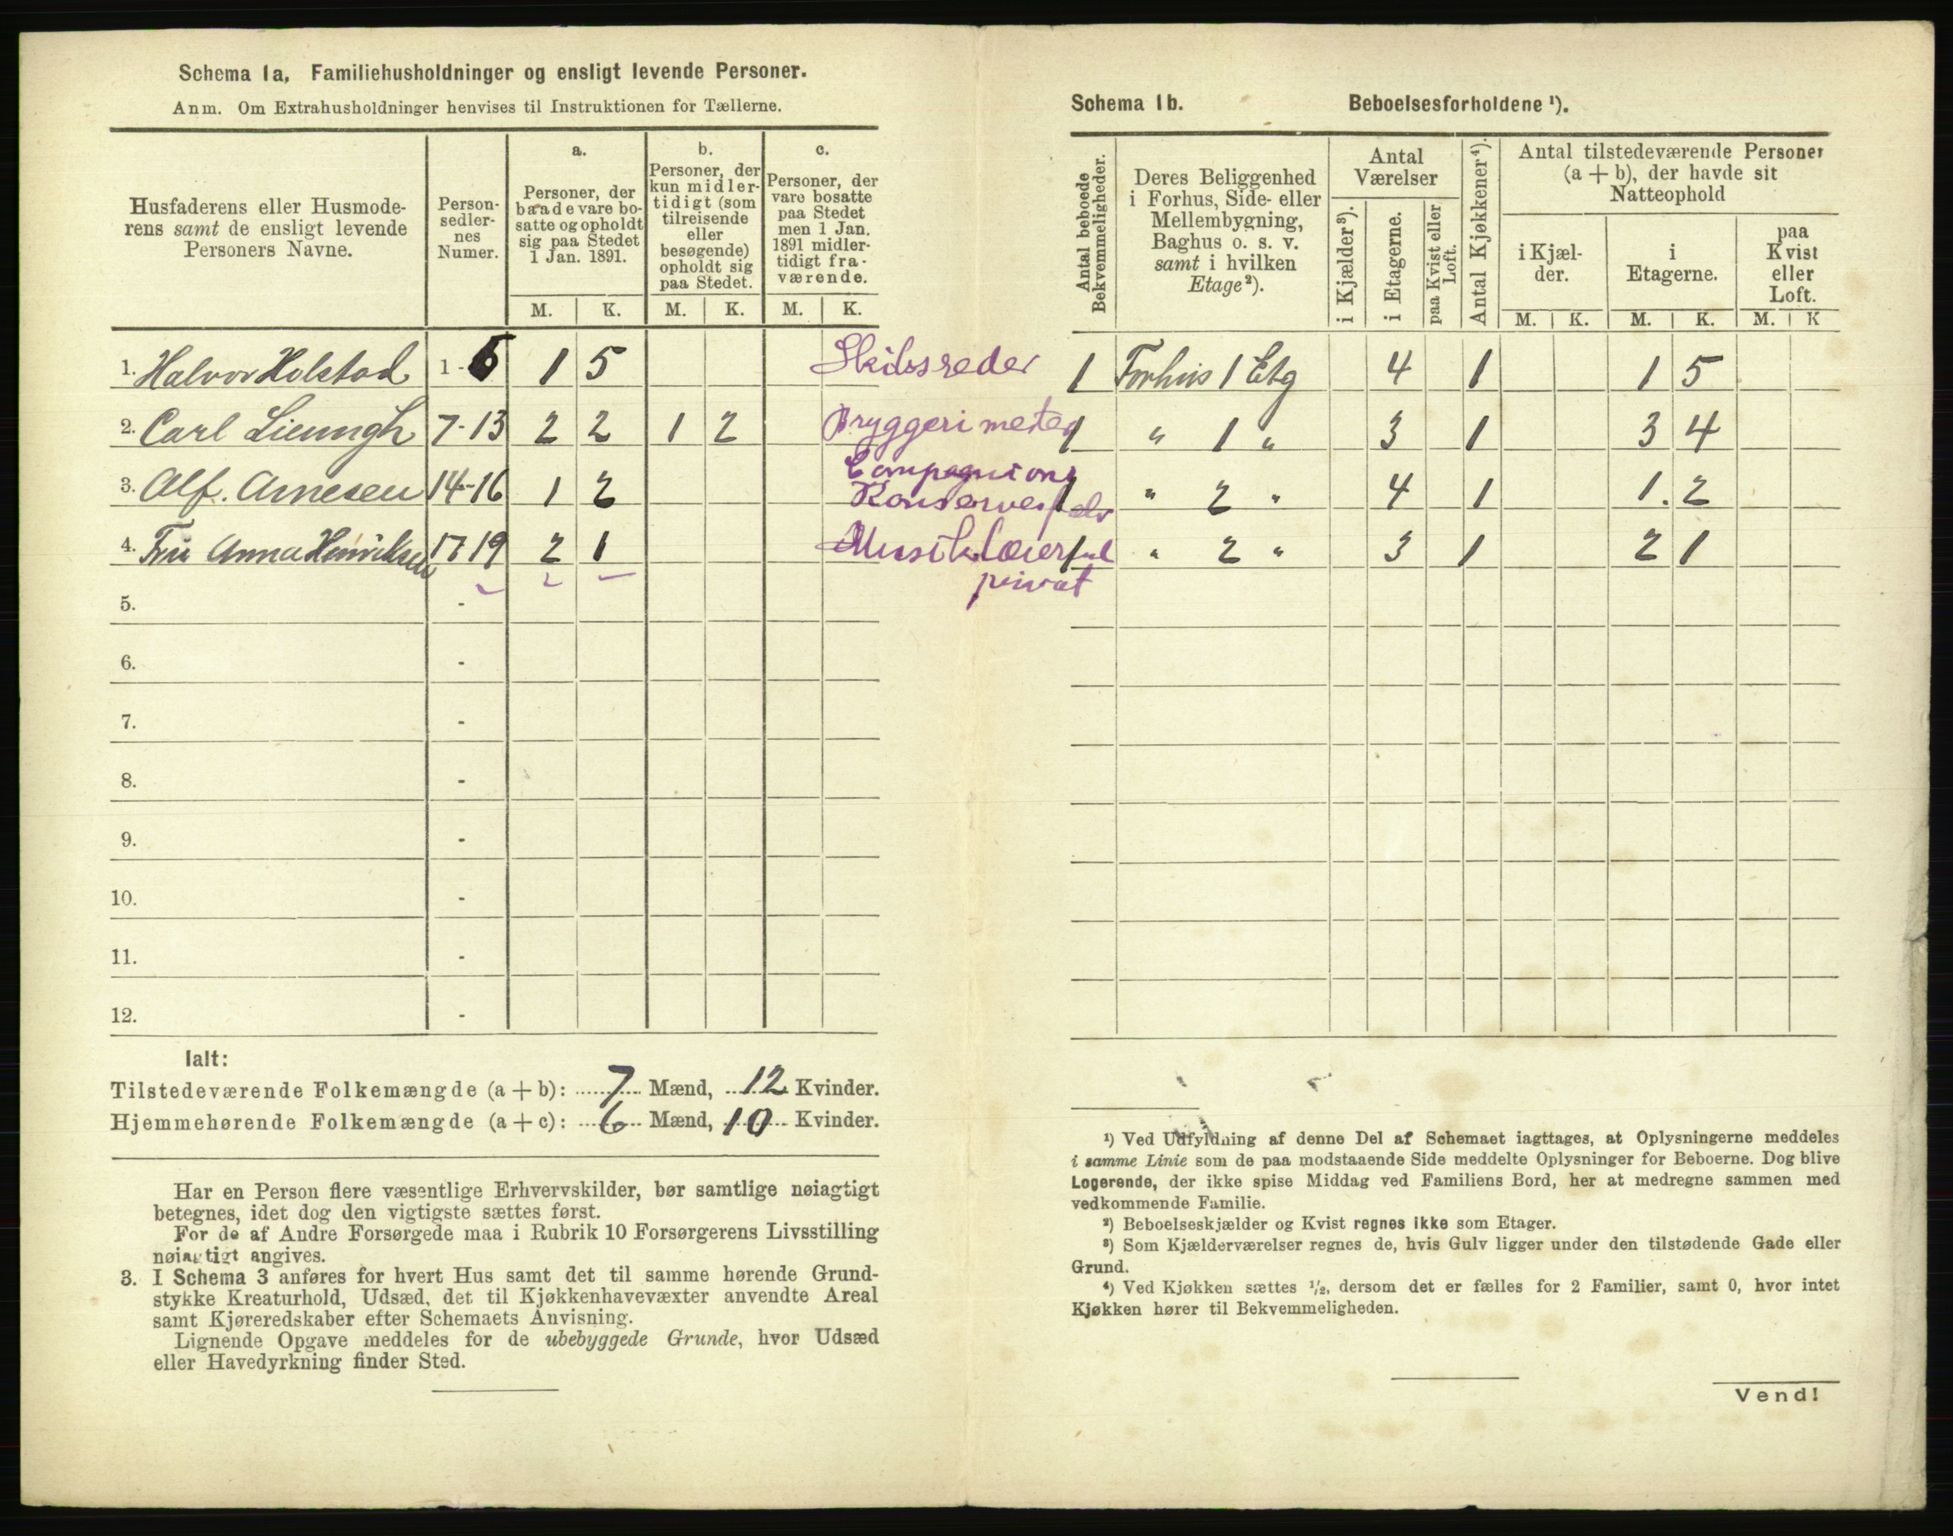 Schema 1a, Familiehusholdninger og ensligt levende Personer.
Anm. Om Extrahusholdninger henvises til Instruktionen for Tællerne.
Husfaderens eller Husmode-
rens samt de ensligt levende
Personers Navne.
Person-
sedler-
nes
Numer.
a.
Personer, der
baade vare bo-
satte og opholdt
sig paa Stedet
1 Jan. 1891.
b.
Personer, der
kun midler-
tidigt (som
tilreisende
eller
besøgende)
opholdt sig
paa Stedet.
c.
Personer, der
vare bosatte
paa Stedet
men 1 Jan.
1891 midler-
tidigt fra-
værende.
M. K. M. K. M. K.
1. Halvor Holstad 1-6 1 5 Skibsreder
2. Carl Lieungh 7-13 2 2 1 2 Bryggerimester
3. Alf. Arnesen 14-16 1 2 Compagnion
4. Fru Anna Henriksen 17-19 2 1 Musiklærer
privat
5. -
6. -
7. -
8. -
9. -
10. -
11. -
12. -
Ialt:
Tilstedeværende Folkemængde (a + b): 7 Mænd, 12 Kvinder.
Hjemmehørende Folkemængde (a + c): 6 Mænd, 10 Kvinder.
Har en Person flere væsentlige Erhvervskilder, bør samtlige nøiagtigt
betegnes, idet dog den vigtigste sættes først.
For de af Andre Forsørgede maa i Rubrik 10 Forsørgerens Livsstilling
nøiagtigt angives.
3. I Schema 3 anføres for hvert Hus samt det til samme hørende Grund-
stykke Kreaturhold, Udsæd, det til Kjøkkenhavevæxter anvendte Areal
samt Kjøreredskaber efter Schemaets Anvisning.
Lignende Opgave meddeles for de ubebyggede Grunde, hvor Udsæd
eller Havedyrkning finder Sted.
Schema 1b. Beboelsesforholdene ¹).
Antal beboede
Bekvemmeligheder.
Deres Beliggenhed
i Forhus, Side- eller
Mellembygning,
Baghus o. s. v.
samt i hvilken
Etage²).
Antal
Værelser
i Kjælder³).
i Etagerne.
paa Kvist eller
Loft.
Antal Kjøkkener⁴).
Antal tilstedeværende Personer
(a + b), der havde sit
Natteophold
i Kjæl-
der.
i
Etagerne.
paa
Kvist
eller
Loft.
M. K. M. K. M. K
1 Forhus 1 Etg 4 1 1 5
1 " 1 " 3 1 3 4
1 " 2 " 4 1 1. 2
1 " 2 " 3 1 2 1
¹) Ved Udfyldning af denne Del af Schemaet iagttages, at Oplysningerne meddeles
i samme Linie som de paa modstaaende Side meddelte Oplysninger for Beboerne. Dog blive
Logerende, der ikke spise Middag ved Familiens Bord, her at medregne sammen med
vedkommende Familie.
²) Beboelseskjælder og Kvist regnes ikke som Etager.
³) Som Kjælderværelser regnes de, hvis Gulv ligger under den tilstødende Gade eller
Grund.
⁴) Ved Kjøkken sættes ¹/₂, dersom det er fælles for 2 Familier, samt 0, hvor intet
Kjøkken hører til Bekvemmeligheden.
Vend!